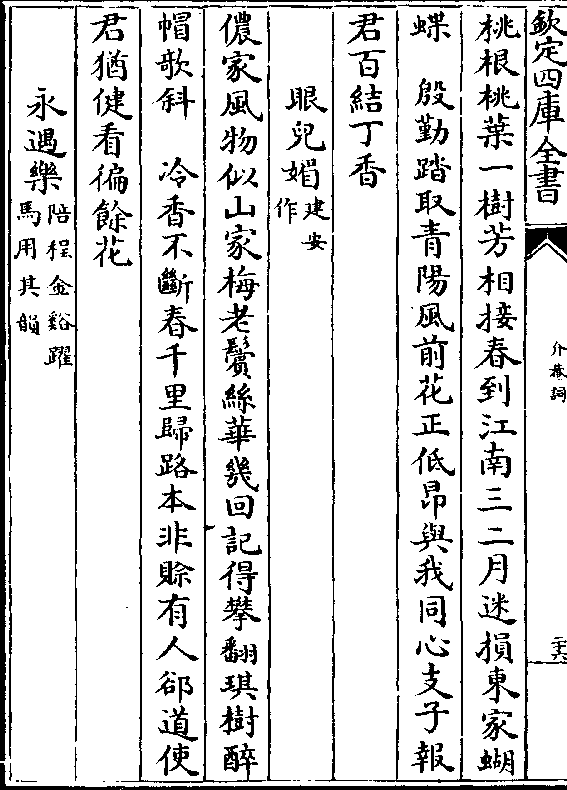 欽定四庫全書
介菴詞
二十六
桃根桃葉一樹芳相接春到江南三二月迷損東家蝴
蝶　殷勤踏取青陽風前花正低昂與我同心支子報
君百結丁香
眼兒媚建安作
儂家風物似山家梅老鬢絲華幾回記得攀翻琪樹醉
帽歌斜　冷香不斷春千里歸路本非賒有人卻道使
君猶健看徧餘花
永遇樂陪程金谿躍馬用其韻